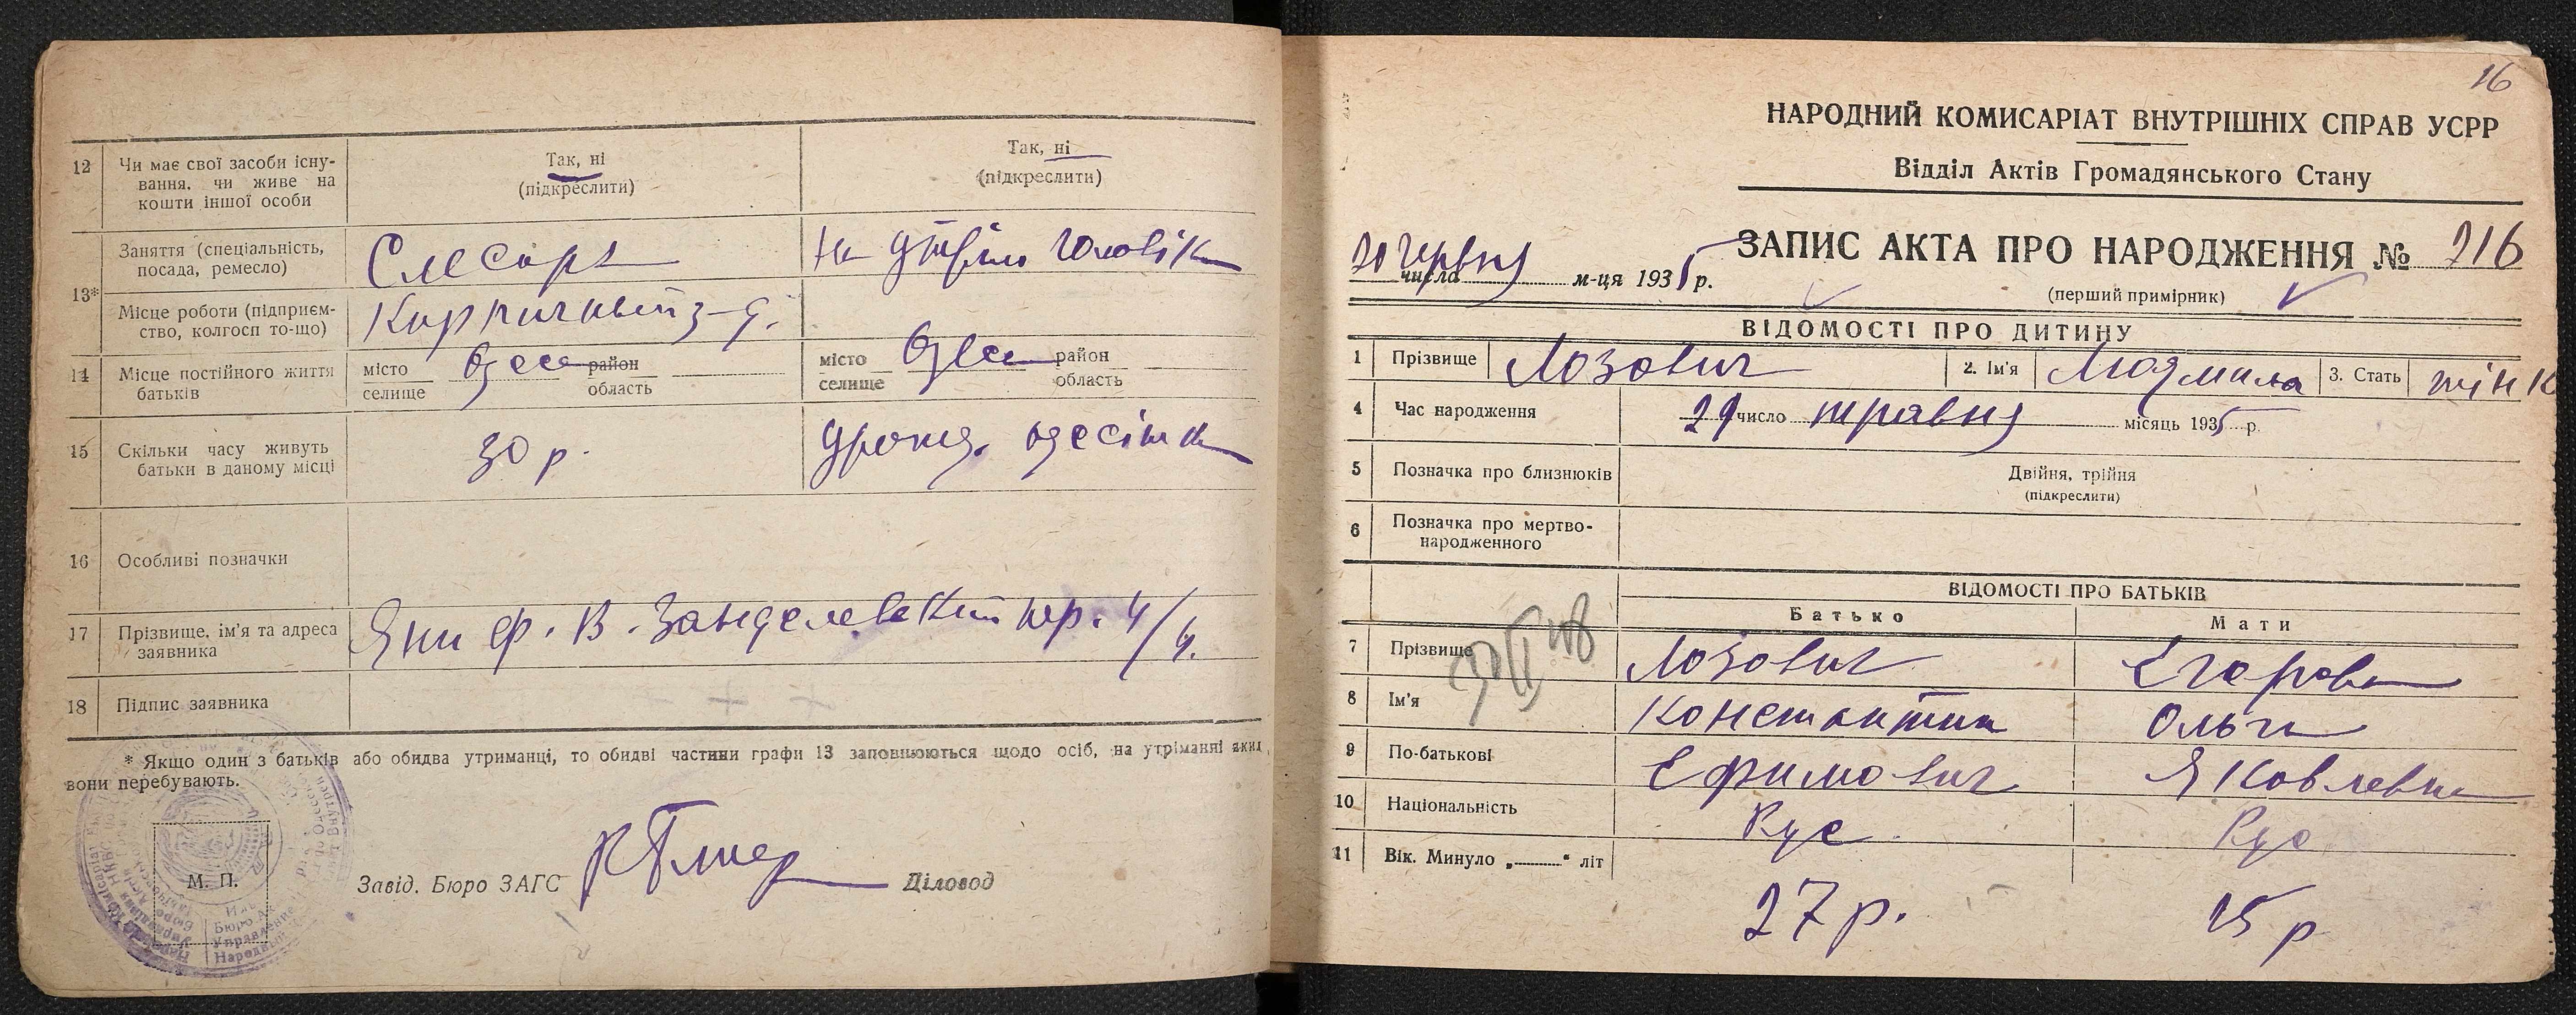 12 Чи має свої засоби існування, чи живе на кошти іншої особи
Так, ні (підкреслити)
Так, ні (підкреслити)
13*
Заняття (спеціальність, посада, ремесло)
Слесарь
На утрім. чоловіка
Місце роботи (підприємство, колгосп то-що)
Кирпичный з-д.
14 Місце постійного життя батьків
місто Одеса район
селище область
місто Одеса район
селище область
15 Скільки часу живуть батьки в даному місці
30 р.
урожд. одесітка
16 Особливі позначки
17 Прізвище, ім'я та адреса заявника
4/
18 Підпис заявника
* Якщо один з батьків або обидва утриманці, то обидві частини графи 13 заповнюються щодо осіб, на утріманні яких
вони перебувають.
М. П.
Завід. Бюро ЗАГС
Діловод
16
НАРОДНИЙ КОМИСАРІАТ ВНУТРІШНІХ СПРАВ УСРР
Відділ Актів Громадянського Стану
ЗАПИС АКТА ПРО НАРОДЖЕННЯ № 216
червня числа м-ця 1935 р.
(перший примірник)
ВІДОМОСТІ ПРО ДИТИНУ
1 Прізвище Лозович 2. Ім'я Людмила 3. Стать жінк
4 Час народження 29 число травня місяць 1935 р.
5 Позначка про близнюків Двійня, трійня
(підкреслити)
6 Позначка про мертвонародженного
ВІДОМОСТІ ПРО БАТЬКІВ
Батько Мати
7 Прізвище Лозович Егорова
8 Ім'я Константин Ольга
9 По-батькові Ефимович Яковлевна
10 Національність Рус. Рус
11 Вік. Минуло „ “ літ
27 р. 25 р